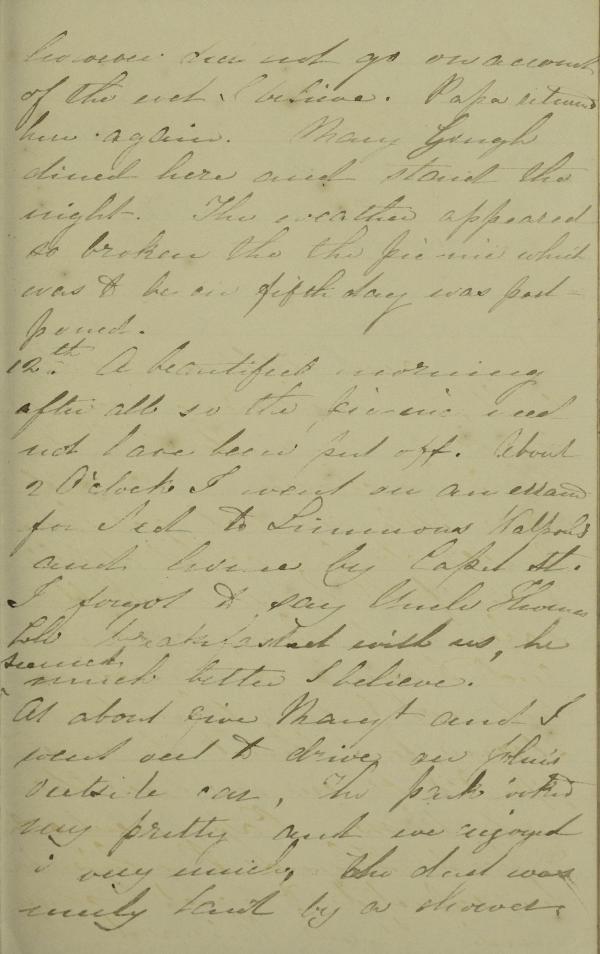 however did not go on account
of the wet I believe. Papa returned
here again. Mary Gough
dined here and staid the
night. The weather appeared
so broken the the pic-nic which
was to be on fifth day was post-
poned.
12th. A beautiful morning
after all so the pic-nic need
not have been put off. About
2 O'clock I went on an errand
for Ted to Simmons
and home by Capel St.
I forgot to say Uncle Thomas
breakfasted with us, he
seemed
much better I believe.
At about five Margt and I
went out to drive on John's
outside car, The park looked
very pretty and we enjoyed
i very much, the dust was
nicely laid by a shower.